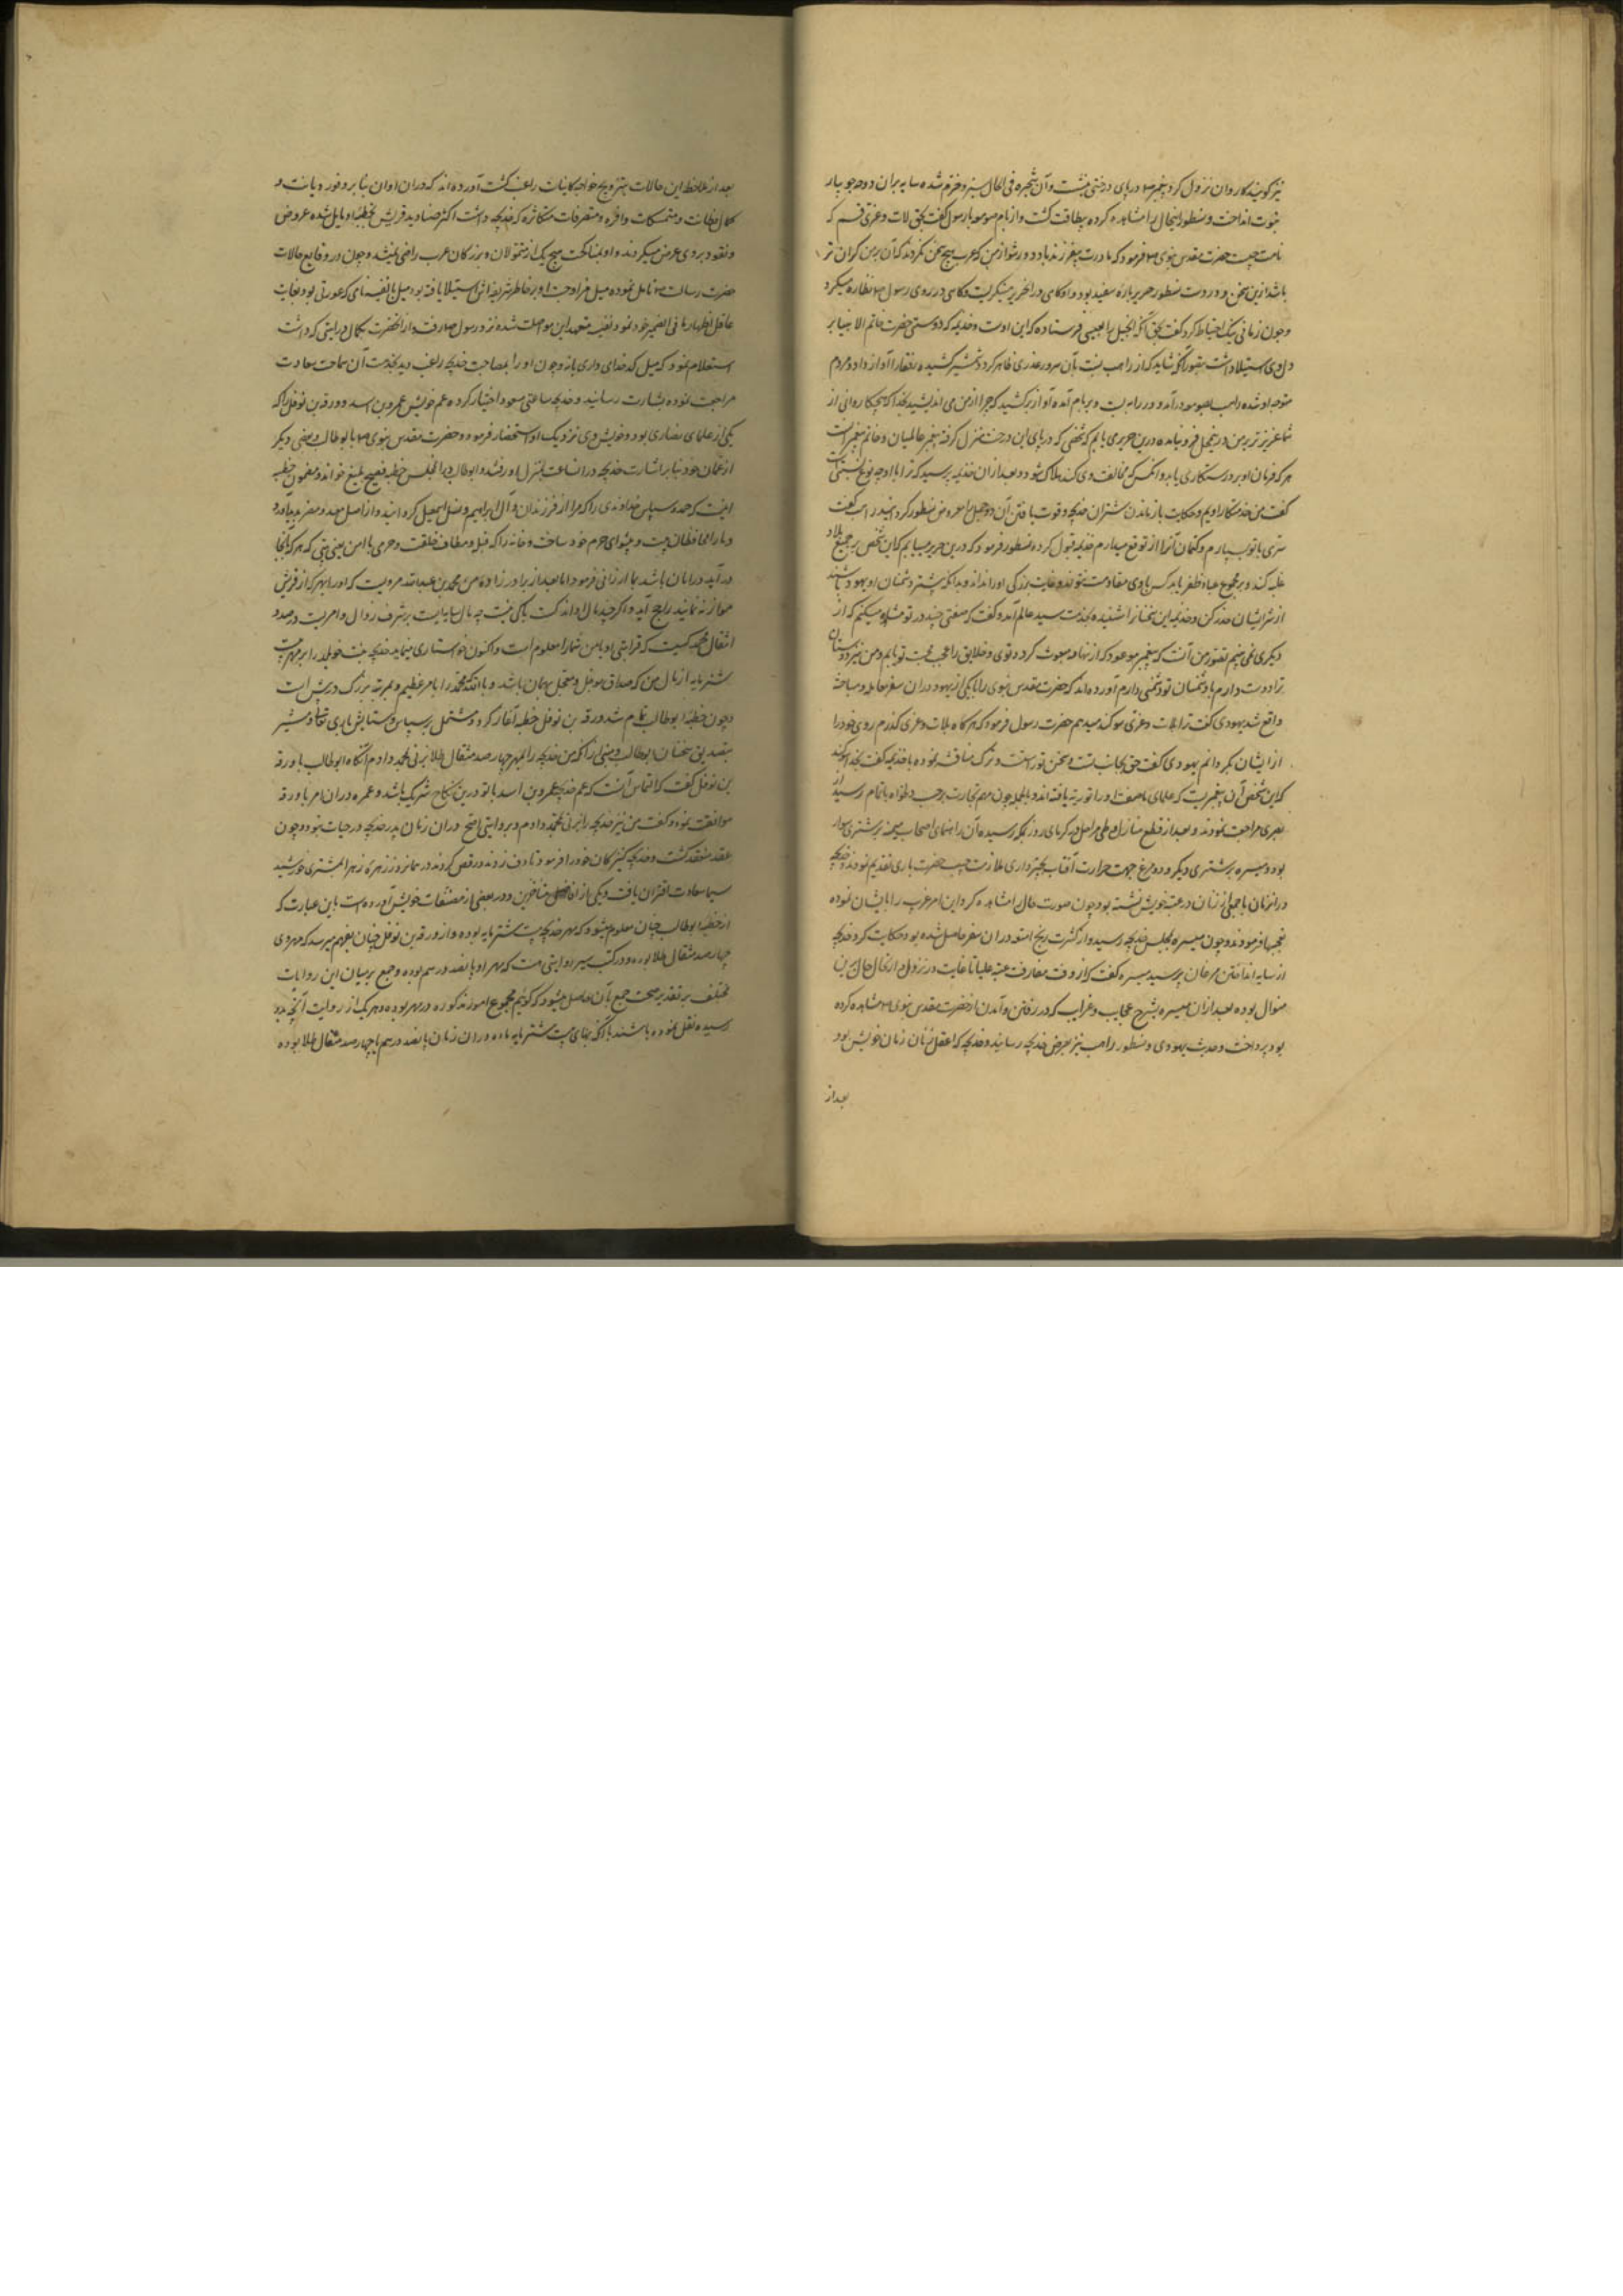 نیز گویند کاروان نزول کرد پیغمبر در پای درختی بنشست و آن شجره فی الحال سبز و خرم شده سایه بران دوحه جویبار
نبوت انداخت و نسطور اینحال را مشاهده کرده بیطاقت گشت و از بام صومعه با رسول گفت بحق لات و عزی قسم که
نامت چیست حضرت مقدس نبوی فرمود که مادرت بیفرزند باد دور شو از من که عرب هیچ سخن نکردند که آن بر من گران تر
باشد ازین سخن و در دست نسطور حریر پاره سفید بود و او گاهی در آن حریر مینگریست و گاهی در روی رسول نظاره میکرد
و چون زمانی نیک احتیاط کرد گفت بحق آنکه انجیل را بعیسی فرستاده که این اوست و خدیمه که دوستی حضرت خاتم الانبیا بر
دل وی استیلا داشت تصور آنکه شاید که از راهب نسبت بآن سرور غدری ظاهر گردد شمشیر کشیده رفقا را آواز داد و مردم
متوجه او شده راهب بصومعه درآمد و در را ببست و بر بام آمده آواز برکشید که چرا از من می اندیشید بخدا که هیچ کاروانی از
شما عزیزتر بر من درینمحل فرو نیامده درین حریر می یابم که شخصی که در پای این درخت منزل گرفته پیغمبر عالمیان و خاتم پیغمبرانست
هر که فرمان او برد رستگاری یابد و آنکس که مخالفت وی کند هلاک شود و بعد ازان از خدیمه پرسید که ترا با او چه نوع نسبتی است
گفت من خدمتکار اویم و حکایت باز ماندن شتران خدیجه و قوت یافتن آن دو جمل را معروض نسطور گردانید راهب گفت
سری با تو بسپارم و کتمان آنرا از تو توقع میدارم خدیمه قبول کرده نسطور فرمود که درین حریر مییابم که این شخص بر جمیع بلاد
غلبه کند و بر مجموع عباد ظفر یابد کس با وی مقاومت نتواند و غایت بزرگی او را نداند و بدانکه بیشتر دشمنان او یهود باشند
از شر ایشان حذر کن و خدیمه این سخنان را شنیده بخدمت سید عالم آمد و گفت که صفتی چند در تو مشاهده میکنم که از
دیگری نمی بینم تصور من آنست که پیغمبر موعود که از تهامه مبعوث گردد توی و خلایق را محب تو یابم و من نیز دوستان
ترا دوست دارم و با دشمنان تو دشمنی دارم آورده اند که حضرت مقدس نبوی را با یکی از یهود دران سفر معامله و مباحثه
واقع شد یهودی گفت ترا بلات و عزی سوگند میدهم حضرت رسول فرمود که هر گاه بلات و عزی گذرم روی خود را
از ایشان بگردانم یهودی گفت حق بجانب تست و سخن تو راست و ترک مناقشه نموده با خدیمه گفت بخدا سوگند
که این شخص آن پیغمبریست که علمای ما صفت او را در تورته یافته اند و بالجمله چون مهم تجارت بر حسب دلخواه باتمام رسید از
بصری مراجعت نمودند و بعد از قطع منازل و طی مراحل در گرمای روز بمکه رسیده آن راهنمای اصحاب میمنه بر شتری سوار
بود و میسره بر شتری دیگر و دو مرغ جهت حرارت آفتاب بچتر داری ملازمت حبیب حضرت باری تقدیم نمودند خدیجه
در آنزمان با جمعی از زنان در غرفه خویش نشسته بود چون صورت حال را مشاهده کرد و این امر غریب را بایشان نموده
تعجبها فرمودند و چون میسره بمجلس خدیجه رسید و از کثرت ربح امتعه دران سفر حاصل شده بود حکایت کرد خدیجه
از سایه انداختن مرغان پرسید میسره گفت که از وقت مفارقت عتبه علیا تا غایت در نزول و ارتحال حال برین
منوال بوده بعد ازان میسره بشرح عجایب و غرایب که در رفتن و آمدن از حضرت مقدس نبوی مشاهده کرده
بود پرداخت و حدیث یهودی و نسطور راهب نیز بعرض خدیجه رسانید و خدیجه که اعقل زنان زمان خویش بود
بعد از
بعد از ملاحظه این حالات بتزویج خواجه کاینات راغب گشت آورده اند که دران اوان بنابر وفور دیانت و
کمال فطانت و متملکات وافره و متصرفات متکاثره که خدیجه داشت اکثر صنادید قریش بخطبه او مایل شده عروض
و نقود بر وی عرض میکردند و او بمناکحت هیچ یک از متمولان و بزرگان عرب راضی نمیشد و چون در وقایع حالات
حضرت رسالت تامل نموده میل مزاوجت او بر خاطر شریف اش استیلا یافته بود میل با نفیسه نامی که عورتی بود بغایت
عاقل اظهار ما فی الضمیر خود نمود نفیسه متعهد این مواصلت شده نزد رسول صلی رفت و از آنحضرت بکمال درایتی که داشت
استعلام نمود که میل کدخدای داری یا نه و چون او را بمصاحبت خدیجه راغب دید بخدمت آن صاحب سعادت
مراجعت نموده بشارت رسانید و خدیجه ساعتی مسعود اختیار کرده عم خویش عمرو بن اسد و ورقه بن نوفل را که
یکی از علمای نصاری بود و خویش وی نزدیک او استحضار فرمود و حضرت مقدس نبوی با ابوطالب و بعضی دیگر
از عمان خود بنابر اشارت خدیجه دران ساعت بمنزل او رفتند و ابوطالب در آنمجلس خطبه فصیح بلیغ خواند و مضمون خطبه
اینست که حمد و سپاس خداوندی را که ما را از فرزندان و آل ابراهیم و نسل اسمعیل گردانید و از اصل معد و مضر پدید آورد
و ما را محافظان بیت و پیشوای حرم خود ساخت و خانه را که قبله و مطاف خلقت و حرمی با امن یعنی بیتی که هر که آنجا
درآید در امان باشد بما ارزانی فرمود اما بعد از برادر زاده من محمد بن عبدالله مردیست که او را بهر که از قریش
موازنه نمایند راجح آید و اگر چند مال او اندکست باکی نیست چه مال سایه ایست بر شرف زوال و امریست در صدد
انتقال محمد کسیست که قرابتی او با من شما را معلوم است و اکنون خواستاری مینماید خدیجه بنت خویلد را بر مهر بیست
شتر مایه از مال من که صداق موجل و معجل بهمان باشد و بالله که محمد را بامر عظیم و مرتبه بزرگ در پیش است
و چون خطبه ابوطالب تمام شد ورقه بن نوفل خطبه آغاز کرد مشتمل بر سپاس و ستایش باری تعالی و مشیر
بتصدیق سخنان ابوطالب و مبنی از آنکه من خدیجه را بمهر چهارصد مثقال طلا بزنی بمحمد دادم آنگاه ابوطالب با ورقه
بن نوفل گفت که التماس آنست که عم خدیجه عمرو بن اسد با تو درین نکاح شریک باشد و عمرو دران امر با ورقه
موافقت نموده گفت من نیز خدیجه را بزنی بمحمد دادم و بروایتی اصح دران زمان پدر خدیجه در حیات نبود و چون
عقد منعقد گشت و خدیجه کنیزکان خود را فرمود تا دف زدند و رقص کردند در همان روز زهره زهرا بمشتری خورشید
سیما سعادت اقتران یافت و یکی از افاضل متأخرین در بعضی از مصنفات خویش آورده است باین عبارت که
از خطبه ابوطالب چنان معلوم میشود که مهر خدیجه بیست شتر مایه بوده و از ورقه بن نوفل چنان بفهم میرسد که مهر وی
چهارصد مثقال طلا بوده و در کتب سیر روایتی هست که مهر او پانصد درهم بوده و جمع بر بیان این روایات
مختلف بر تقدیر صحت جمع بآن حاصل میشود که گوئیم مجموع امور مذکوره در مهر بوده و هر یک از روایت آنچه بدو
رسیده نقل نموده باشند یا آنکه بهای بیست شتر مایه ماده دران زمان پانصد درهم یا چهارصد مثقال طلا بوده